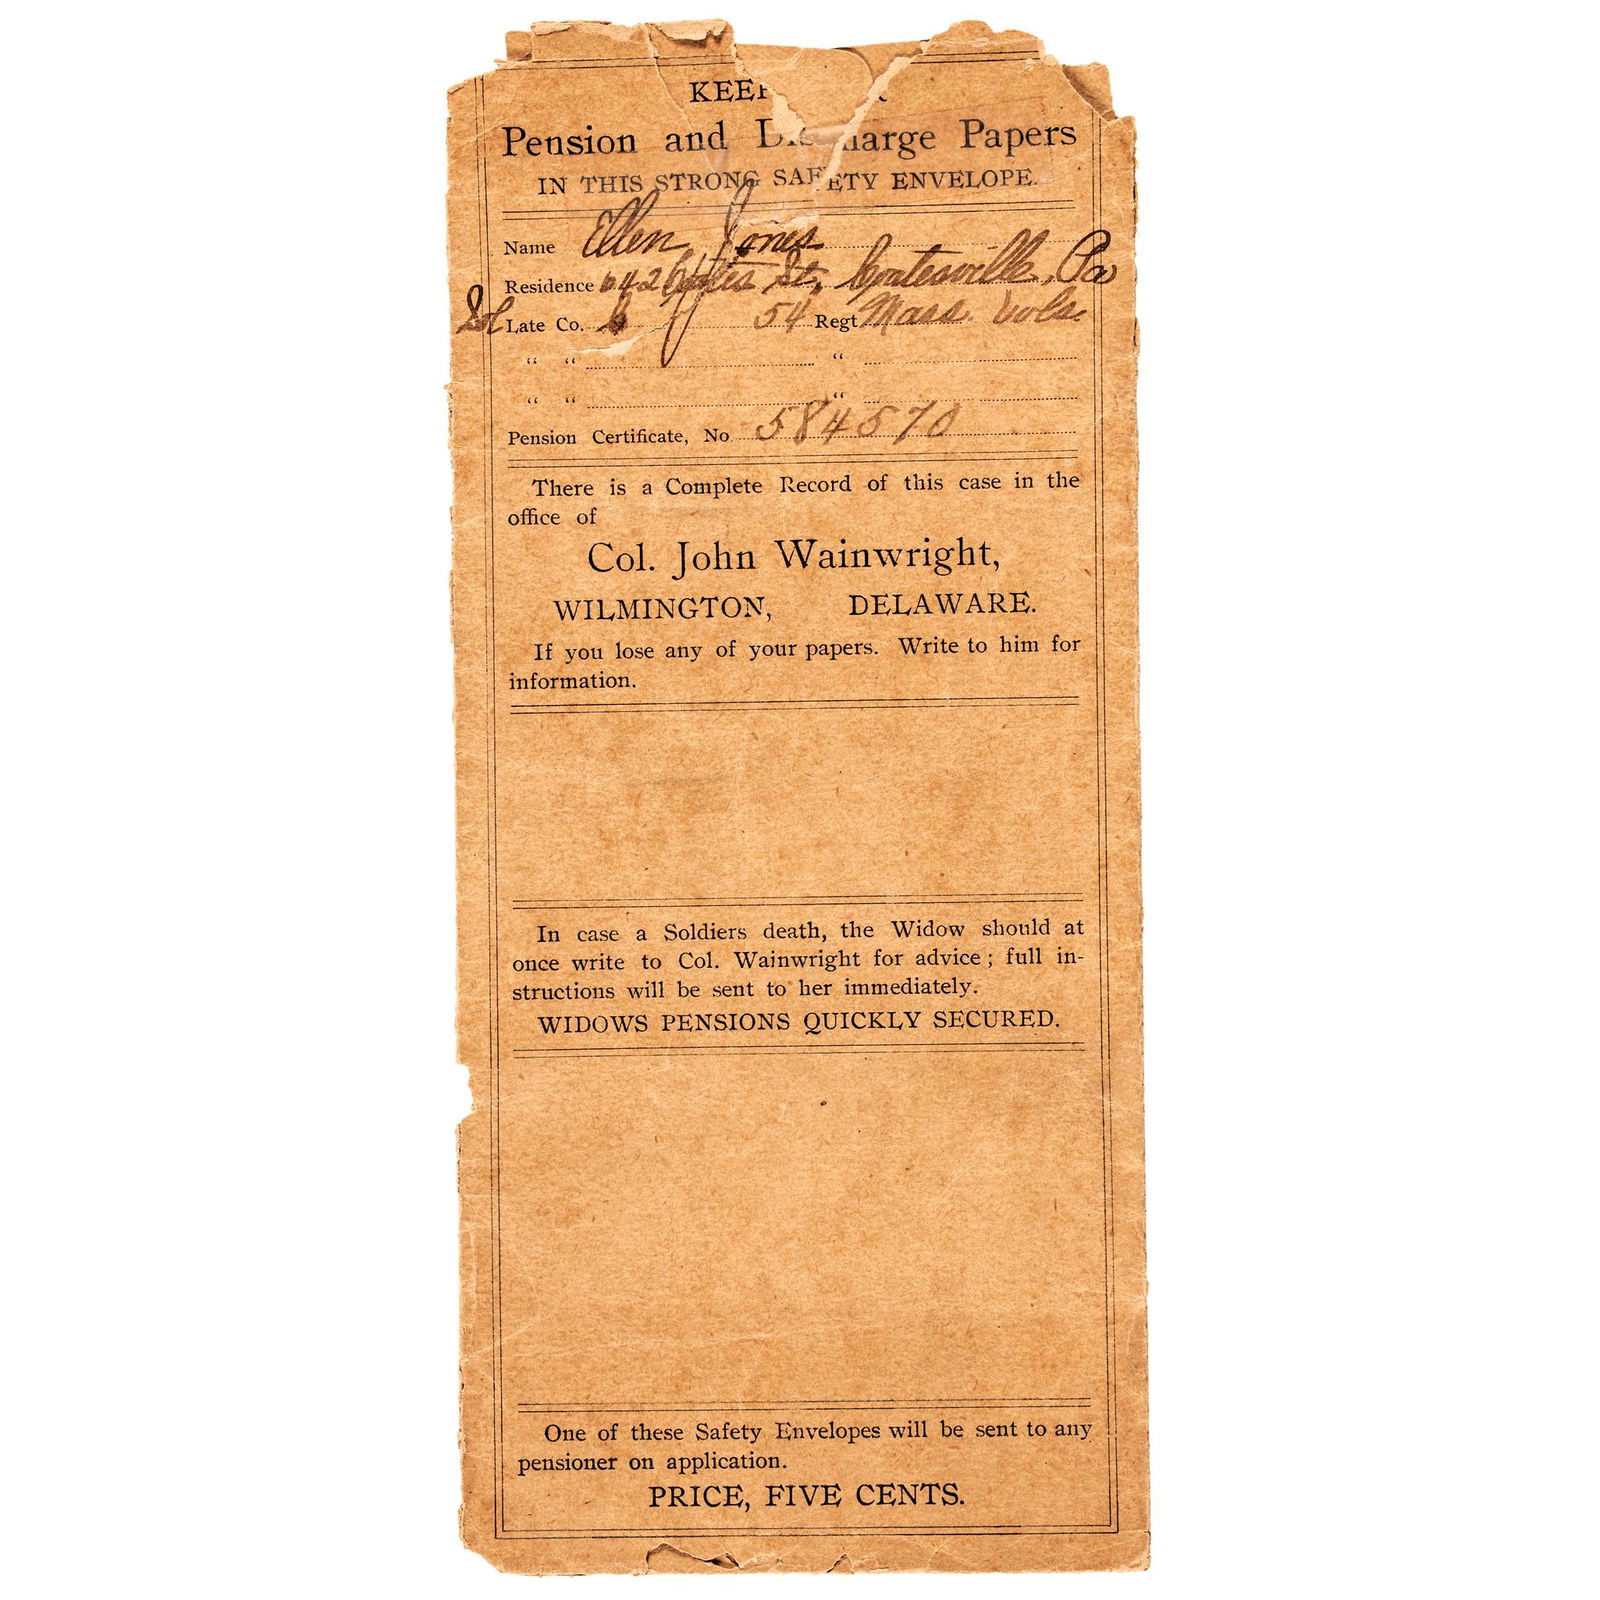 KEEP
Pension and Discharge Papers
IN THIS STRONG SAFETY ENVELOPE.
Name Ellen Jones
Residence 642 St, Coatesville, Pa
Sol Late Co. 54 Regt Mass. Vols.
“ “ “
“ “ “
Pension Certificate, No. 584570
There is a Complete Record of this case in the
office of
Col. John Wainwright,
WILMINGTON, DELAWARE.
If you lose any of your papers. Write to him for
information.
In case a Soldiers death, the Widow should at
once write to Col. Wainwright for advice; full in-
structions will be sent to her immediately.
WIDOWS PENSIONS QUICKLY SECURED.
One of these Safety Envelopes will be sent to any
pensioner on application.
PRICE, FIVE CENTS.